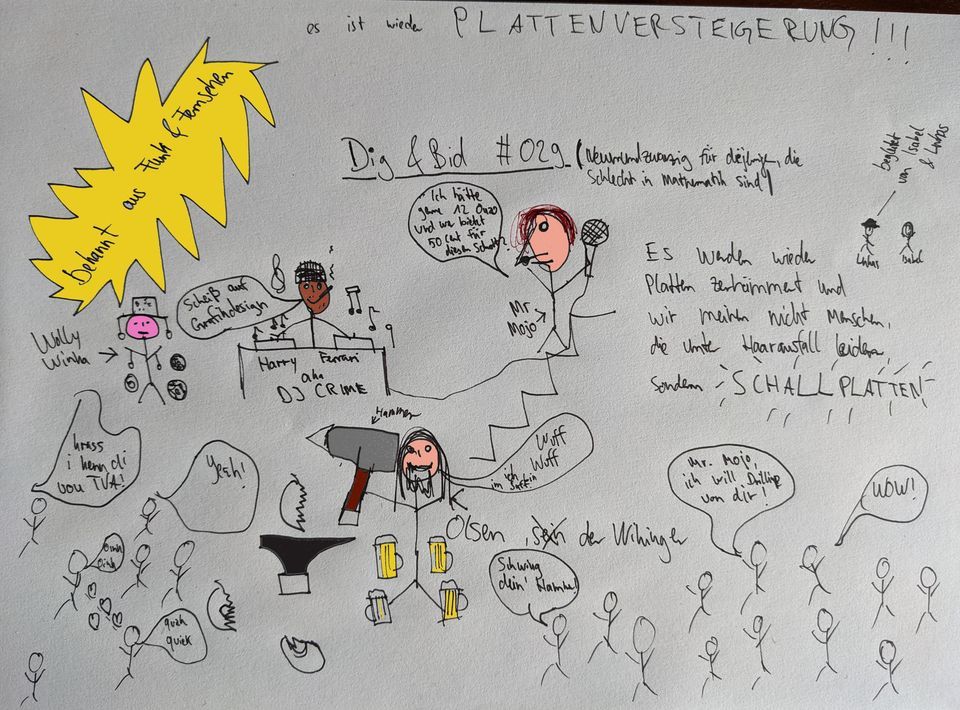 es ist wieder PLATTENVERSTEIGERUNG!!!
Bekannt aus Funk & Fernsehen
Dig & Bid #029
(Neunundzwanzig für diejenige, die
schlecht in Mathematik sind)
begleitet
von Isabel
& Lukas
Lukas
Isabel
Ich hätte
gerne 12 Ouzo
und wer bietet
50 Cent für
diesen Schrott?
Mr.
Mojo
Es werden wieder
Platten zertrümmert und
wir meinen nicht Menschen,
die unter Haarausfall leiden,
sondern SCHALLPLATTEN
Scheiß auf
Grafikdesign
Harry Ferrari
aka
DJ CRIME
Wolly
Winka
Hammer
Wuff
Wuff
ich
im
Olsen, der Wikinger
krass
i kenn di
vou TVA!
Yeah!
Oink
Oink
quiek
quiek
Schwing
dein' Hammer!
Mr. Mojo,
ich will Drillinge
von dir!
WOW!